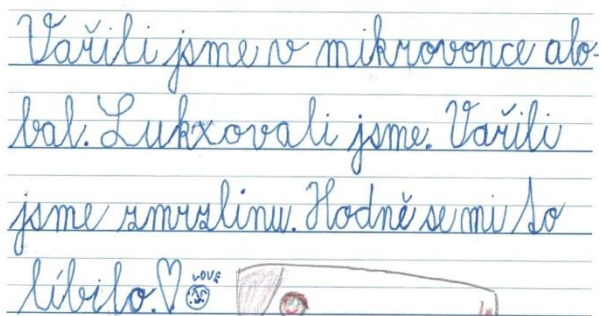 Vařili jsme v mikrovonce alo-
bal. Lukxovali jsme. Vařili
jsme zmrzlinu. Hodně se mi to
líbilo.♡ LOVE